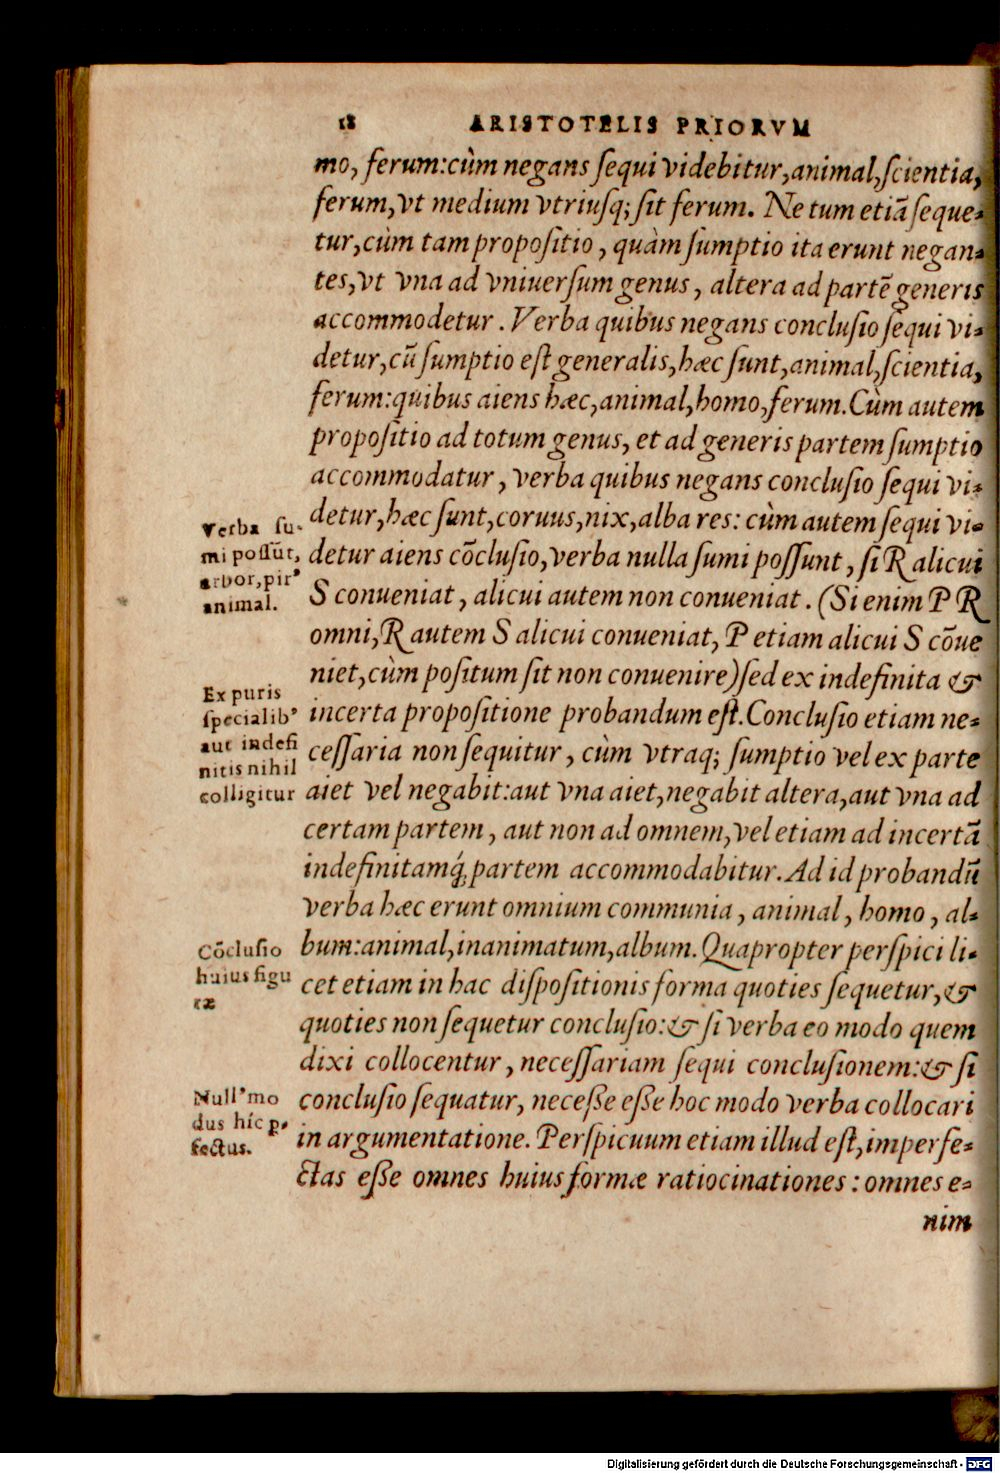 18 ARISTOTELIS PRIORVM
mo, ferum:cùm negans ſequi videbitur,animal,ſcientia,
ferum,vt medium vtriuſq; ſit ferum. Ne tum etiā ſeque-
tur,cùm tam propoſitio, quàm ſumptio ita erunt negan-
tes,vt vna ad vniuerſum genus, altera ad partē generis
accommodetur. Verba quibus negans concluſio ſequi vi-
detur,cū ſumptio eſt generalis,hæc ſunt,animal,ſcientia,
ferum:quibus aiens hæc,animal,homo,ferum.Cùm autem
propoſitio ad totum genus, et ad generis partem ſumptio
accommodatur, verba quibus negans concluſio ſequi vi-
detur,hæc ſunt,coruus,nix,alba res: cùm autem ſequi vi-
detur aiens cōcluſio,verba nulla ſumi poſſunt, ſi R alicui
S conueniat, alicui autem non conueniat. (Si enim P R
omni,R autem S alicui conueniat, P etiam alicui S cōue
niet,cùm poſitum ſit non conuenire)ſed ex indefinita &
incerta propoſitione probandum eſt.Concluſio etiam ne-
ceſſaria non ſequitur, cùm vtraq; ſumptio vel ex parte
aiet vel negabit:aut vna aiet,negabit altera,aut vna ad
certam partem, aut non ad omnem,vel etiam ad incertā
indefinitamq́; partem accommodabitur. Ad id probandū
verba hæc erunt omnium communia, animal, homo, al-
bum:animal,inanimatum,album. Quapropter perſpici li-
cet etiam in hac diſpoſitionis forma quoties ſequetur,&
quoties non ſequetur concluſio:& ſi verba eo modo quem
dixi collocentur, neceſſariam ſequi concluſionem:& ſi
concluſio ſequatur, neceße eße hoc modo verba collocari
in argumentatione. Perſpicuum etiam illud eſt,imperfe-
ctas eße omnes huius formæ ratiocinationes: omnes e-
nim
Verba ſu-
mi poſſūt,
arbor,pir'
animal.
Ex puris
ſpecialib'
aut indefi
nitis nihil
colligitur
Cōcluſio
huius figu
ræ
Null' mo
dus hîc p-
fectus.
Digitalisierung gefördert durch die Deutsche Forschungsgemeinschaft - DFG